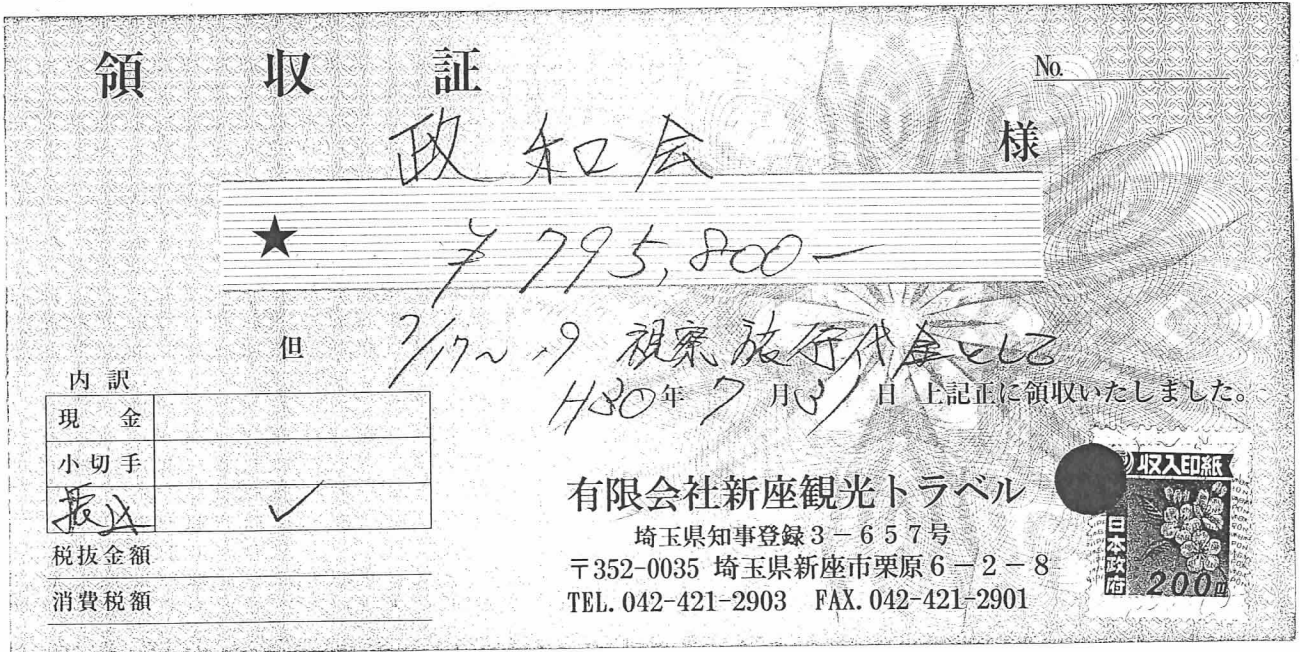 領収証
No.
政和会 様
★ ¥795,800-
但 7/17~19 視察旅行代金として
H30年7月31日 上記正に領収いたしました。
内訳
現金
小切手
振込 ✓
税抜金額
消費税額
有限会社新座観光トラベル
埼玉県知事登録3-657号
〒352-0035 埼玉県新座市栗原6-2-8
TEL.042-421-2903 FAX.042-421-2901
収入印紙
日本政府
200円